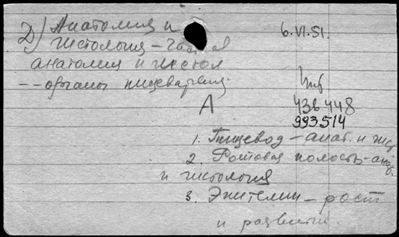 Д) Анатомия и
гистология – частная 6.VI.51.
анатомия и гистол
-- органы пищеварения.
А 436448
993514
1. Пищевод – анат. и гист.
2. Ротовая полость – анат.
и гистология
3. Эпителии – рост
и развитие.